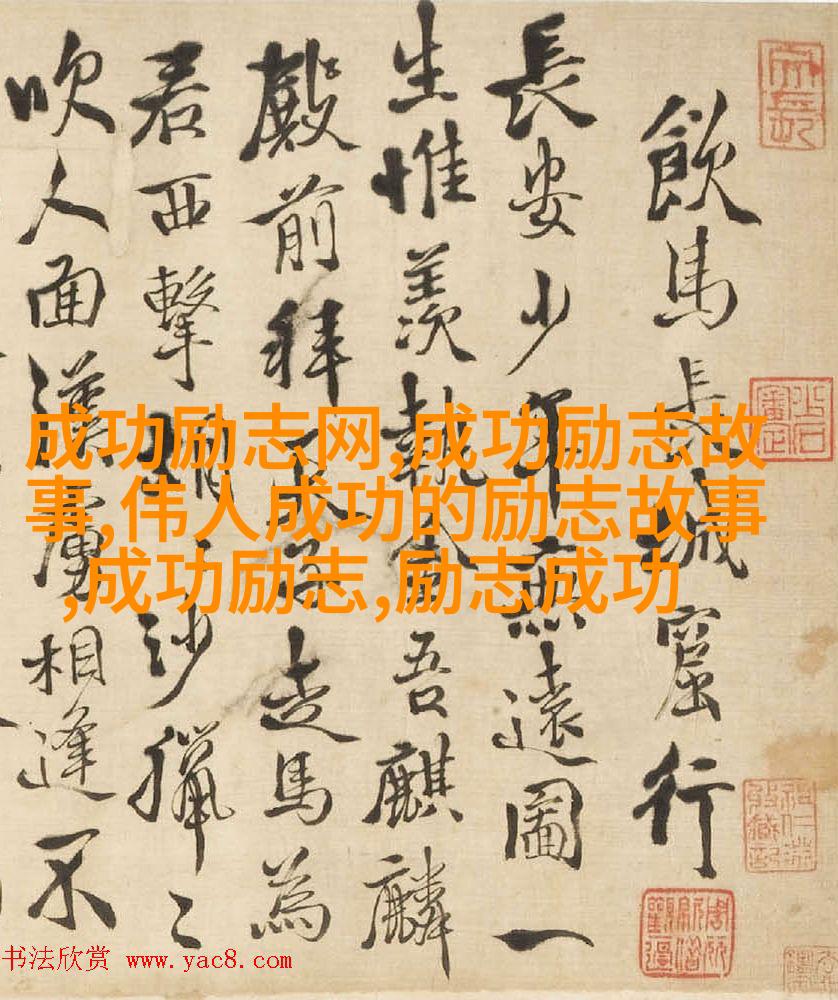 飲馬長城窟行
長安少年無遠圖一
生惟羨執金吾麒麟
殿前拜天子走馬為
君西擊胡〻沙獵〻
吹人面漢虜相逢不
成功励志网,成功励志故
事,伟人成功的励志故事
,成功励志,励志成功
书法欣赏 www.yac8.com